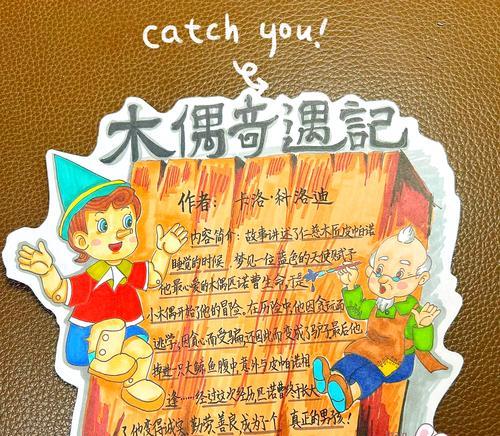 catch you!
木偶奇遇記
作者：卡洛·科洛迪
内容简介：故事讲述了仁慈木匠皮帕诺
睡觉的时候，梦见一位蓝色的天使赋予
他最心爱的木偶匹诺曹生命，于是
小木偶开始了他的冒险。在历险中，他因贪玩而
逃学，因贪心而受骗，还因此而变成了驴，最后他
掉进一只大鲸鱼腹中，意外与皮帕诺相
逢……经过这次经历，匹诺曹终于长大
了，他变得诚实、勤劳、善良，成为了一个真正的男孩！